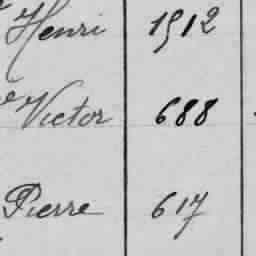 Henri 1912
Victor 688
Pierre 617